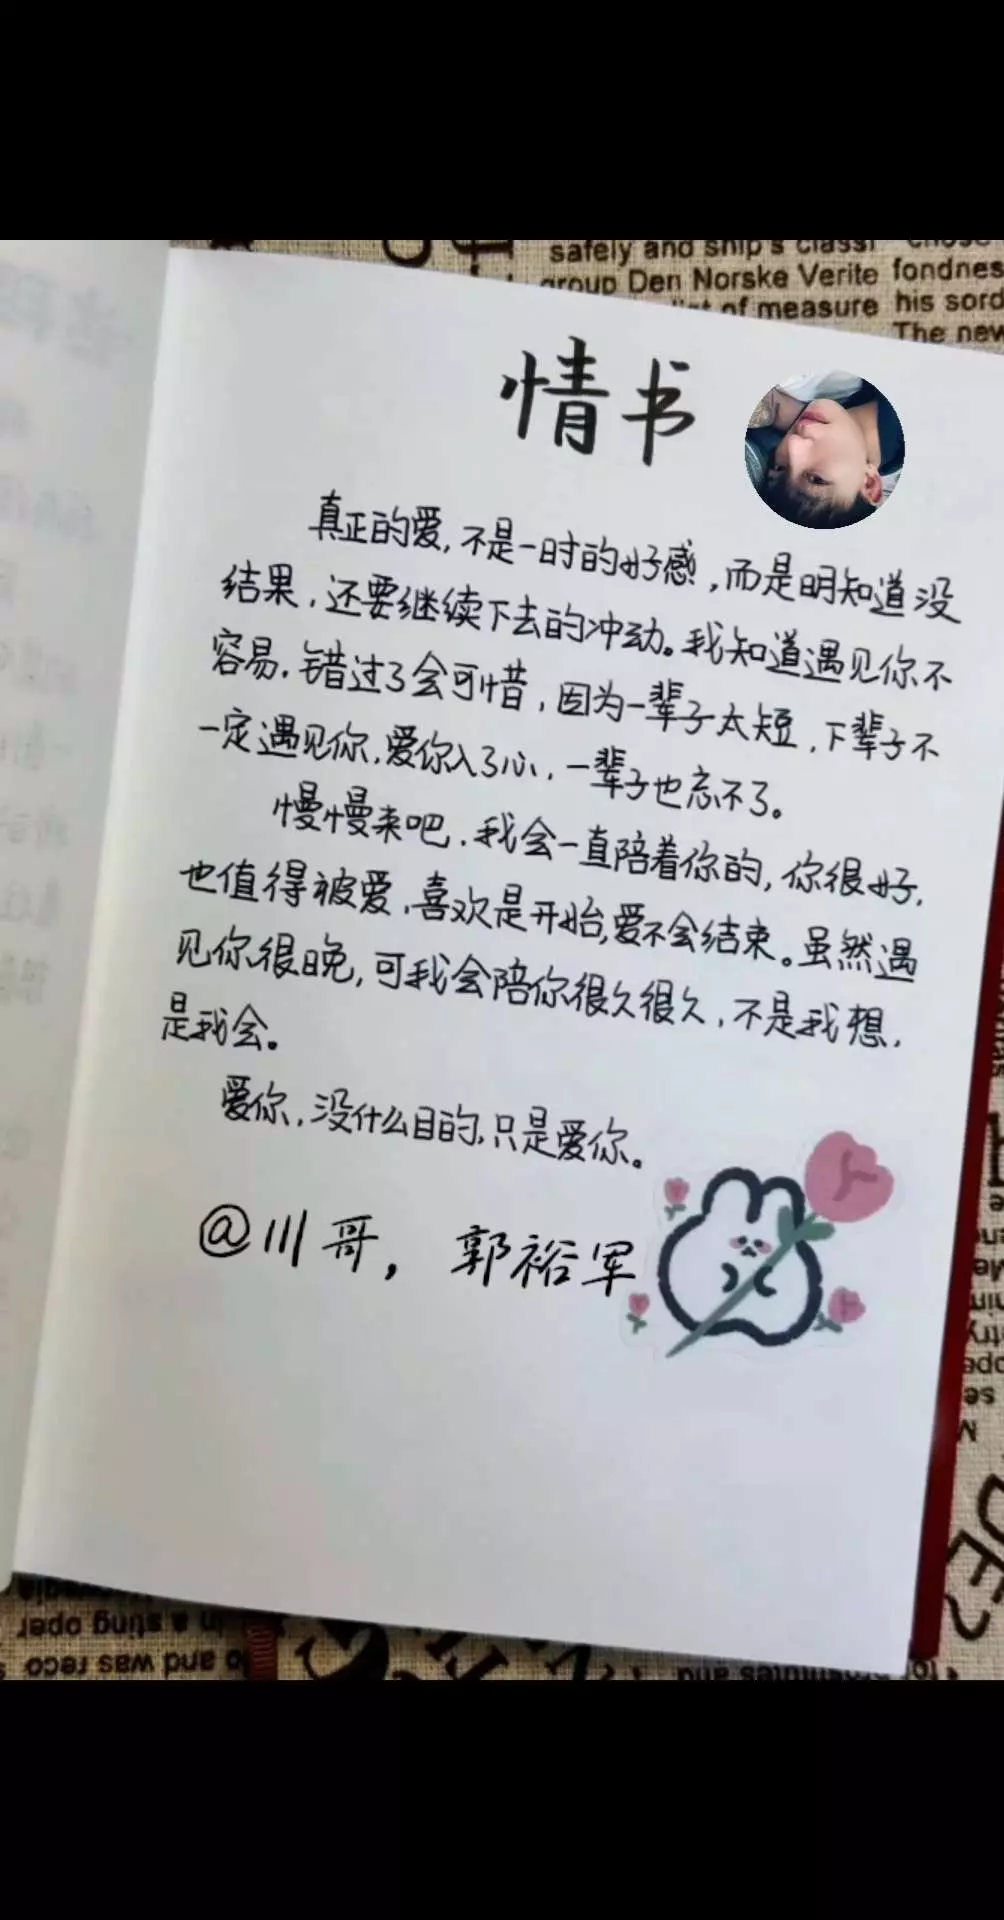 safely and ship's classi
group Den Norske Verite
fondnes
of measure
his sord
The new
情书
真正的爱,不是一时的好感,而是明知道没
结果,还要继续下去的冲动。我知道遇见你不
容易,错过了会可惜,因为一辈子太短,下辈子不
一定遇见你,爱你入了心,一辈子也忘不了。
慢慢来吧,我会一直陪着你的,你很好,
也值得被爱,喜欢是开始,爱不会结束。虽然遇
见你很晚,可我会陪你很久很久,不是我想,
是我会。
爱你,没什么目的,只是爱你。
@川哥,郭裕军
in a sting oper
and was reco